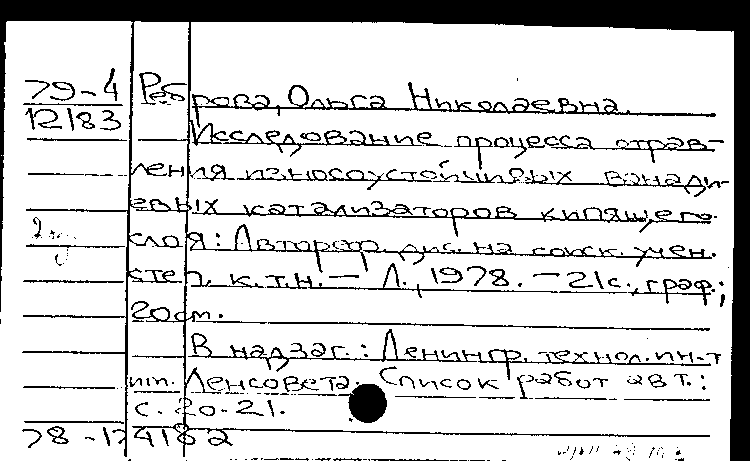 79-4 Реброва, Ольга Николаевна.
12183
Исследование процесса отрав-
ления износоустойчивых ванади-
евых катализаторов кипящего
слоя: Автореф. дис. на соиск. учен.
степ. к.т.н. — Л., 1978. — 21 с., граф.;
20 см.
В надзаг.: Ленингр. технол. ин-т
им. Ленсовета. Список работ авт.:
с. 20-21.
78-174182